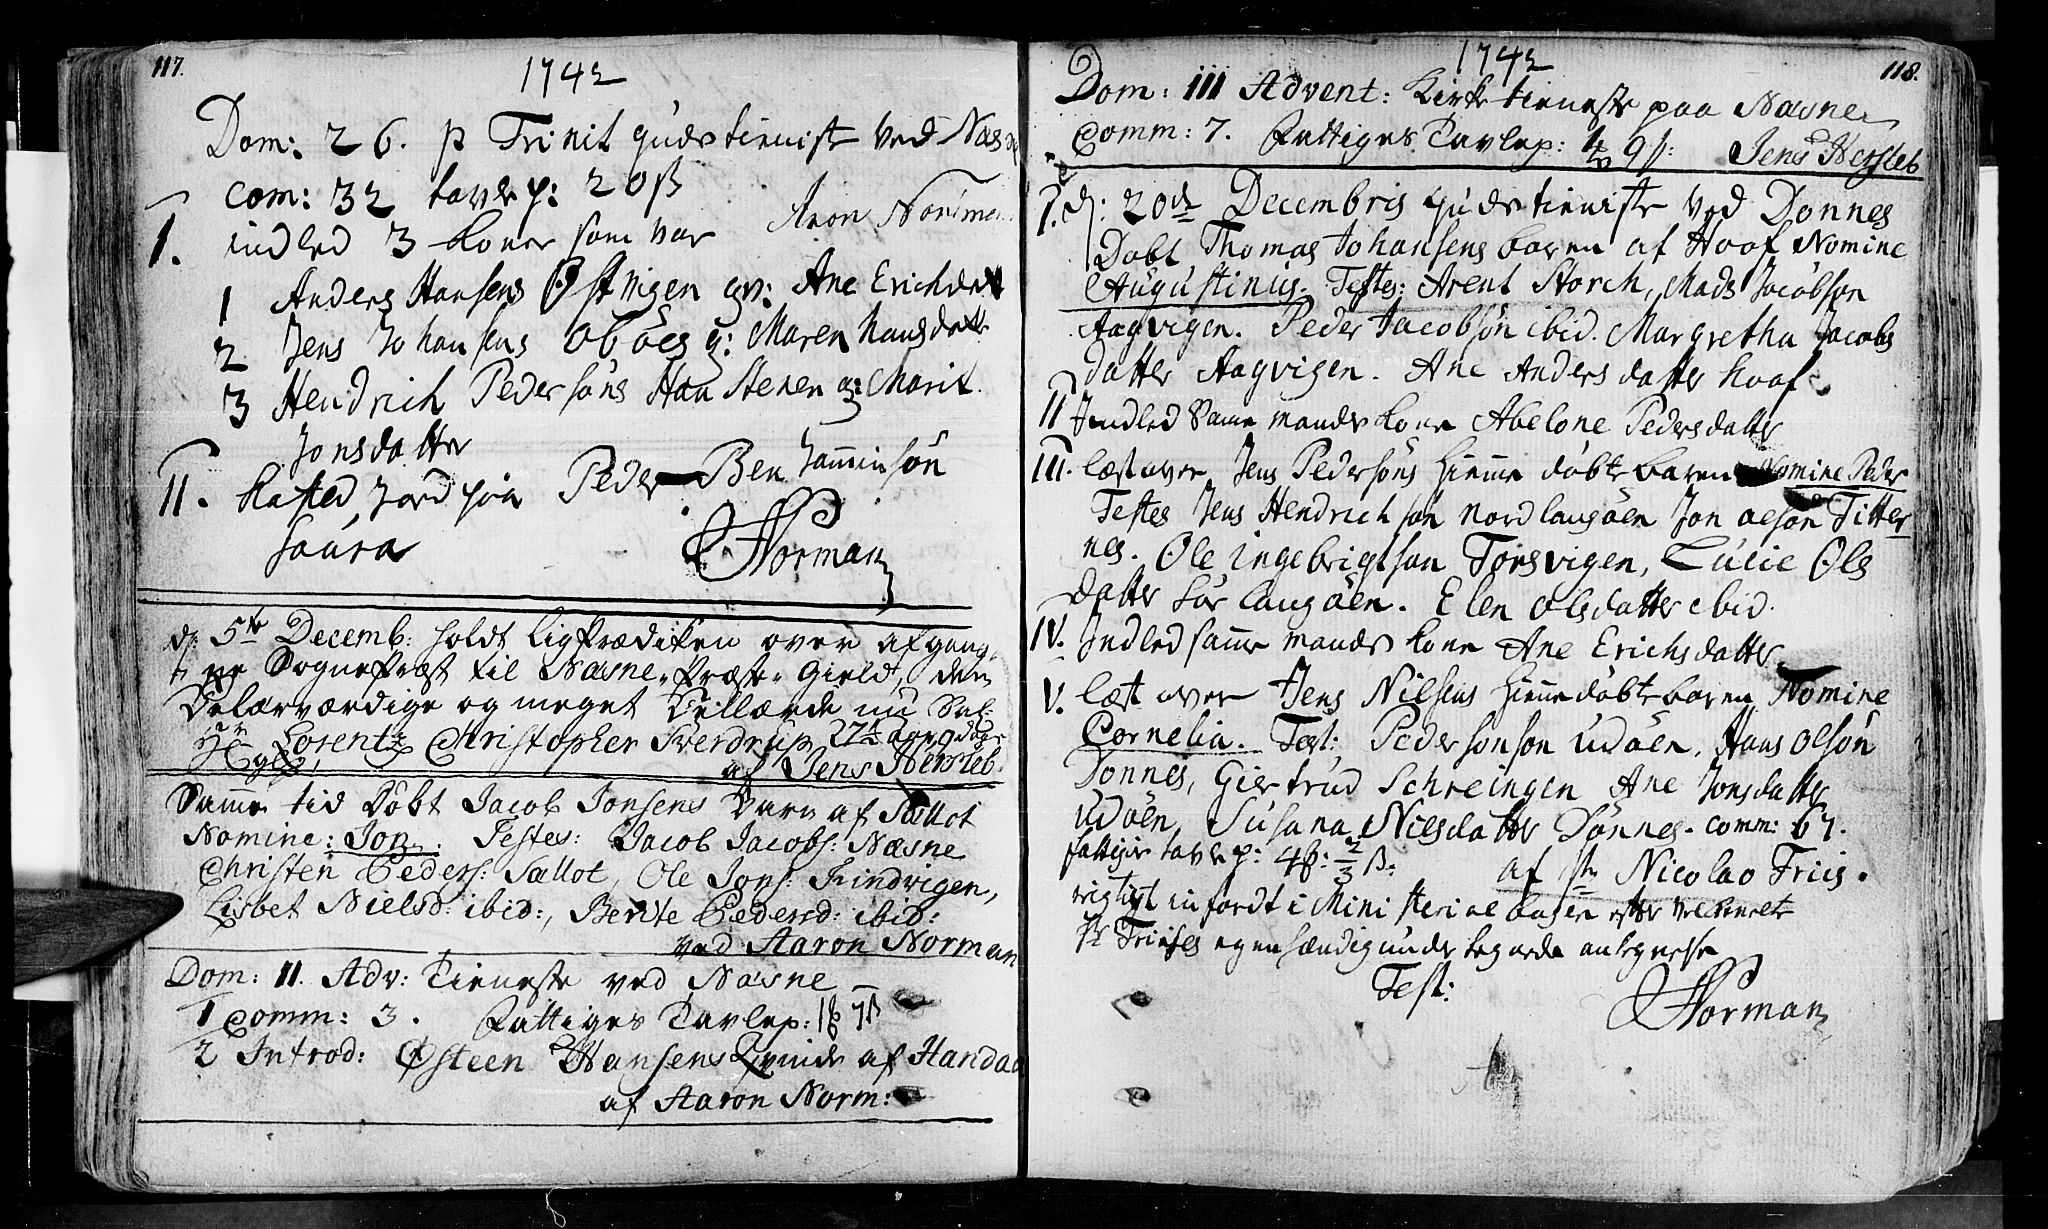 117.
1742
Dom: 26. p Trinit gudstienist ved Næsne
Com: 32 tavlep: 20 ß
Aron Norman
I. indled 3 koner som var
1 Anders Hansens gv: Ane Erichdatt
2 Jens Johansens g: Maren Hansdatt
3 Hendrich Pedersøns Haustenen g: Marit
Jonsdatter
II. kasted jord paa Peder Benjaminsøn
Saura
A Norman
d: 5te Decemb: holdt Ligprædiken over afgang-
ne Sognepræst til Næsne-Præste-Gield, den
Velærværdige og meget Vellærde nu Sal:
Hr Lorentz Christopher Sverdrup
af Jens Hersleb
Samme tid døbt Jacob Jonsens Barn af Sællot
Nomine: Jon. Testes: Jacob Jacobs: Næsne
Christen Peders: Sællot, Ole Jons: Findvigen,
Lisbet Nielsd: ibid:, Berite Pedersd: ibid:
ved Aaron Norman
Dom: II. Adv: Tieneste ved Næsne
1 Comm: 3. Fattiges Tavlep: 7 ß
2 Introd: Østeen Hansens Qvinde af Handaa
af Aaron Norm:
118.
1742
Dom: III Advent: Kirketieneste paa Næsne
Comm: 7. Fattiges Tavlep: 9 ß: Jens Hersleb
I. d: 20de Decembris gudstieniste ved Dønnes
Døbt Thomas Johansens baren af Hoof Nomine
Augustinus. Testes: Arent Storch, Mads Jacobsøn
Aagvigen. Peder Jacobsøn ibid. Margretha Jacobs
datter Aagvigen. Ane Andersdatter Hoof
II Indled samme mands kone Abelone Pedersdatter
III. læst over Jens Pedersøns hiemmedøbte baren Nomine Peder
Testes Jens Hendrichsøn Nordlangøen Jon Olsøn Titter
nes. Ole Ingebrigtsøn Torsvigen, Lucie Ols
datter Sør langøen. Elen Olsdatter ibid.
IV. Indled samme mands kone Ane Erichsdatter
V. læst over Jens Nilsens hiemmedøbte baren Nomine
Cornelia. Test: Peder Udøen, Hans Olsøn
Dønnes, Giertrud Schreingen Ane Jonsdatter
Udøen Susana Nielsdatter Dønnes. comm: 67.
fattiges tavlep: 4 ß: 2/3 ß: af Hr Nicolao Friis.
rigtigt indfordt i Ministerial bogen efter velbemelte
Hr Friises egenhændig antegnelse
Test:
A Norman